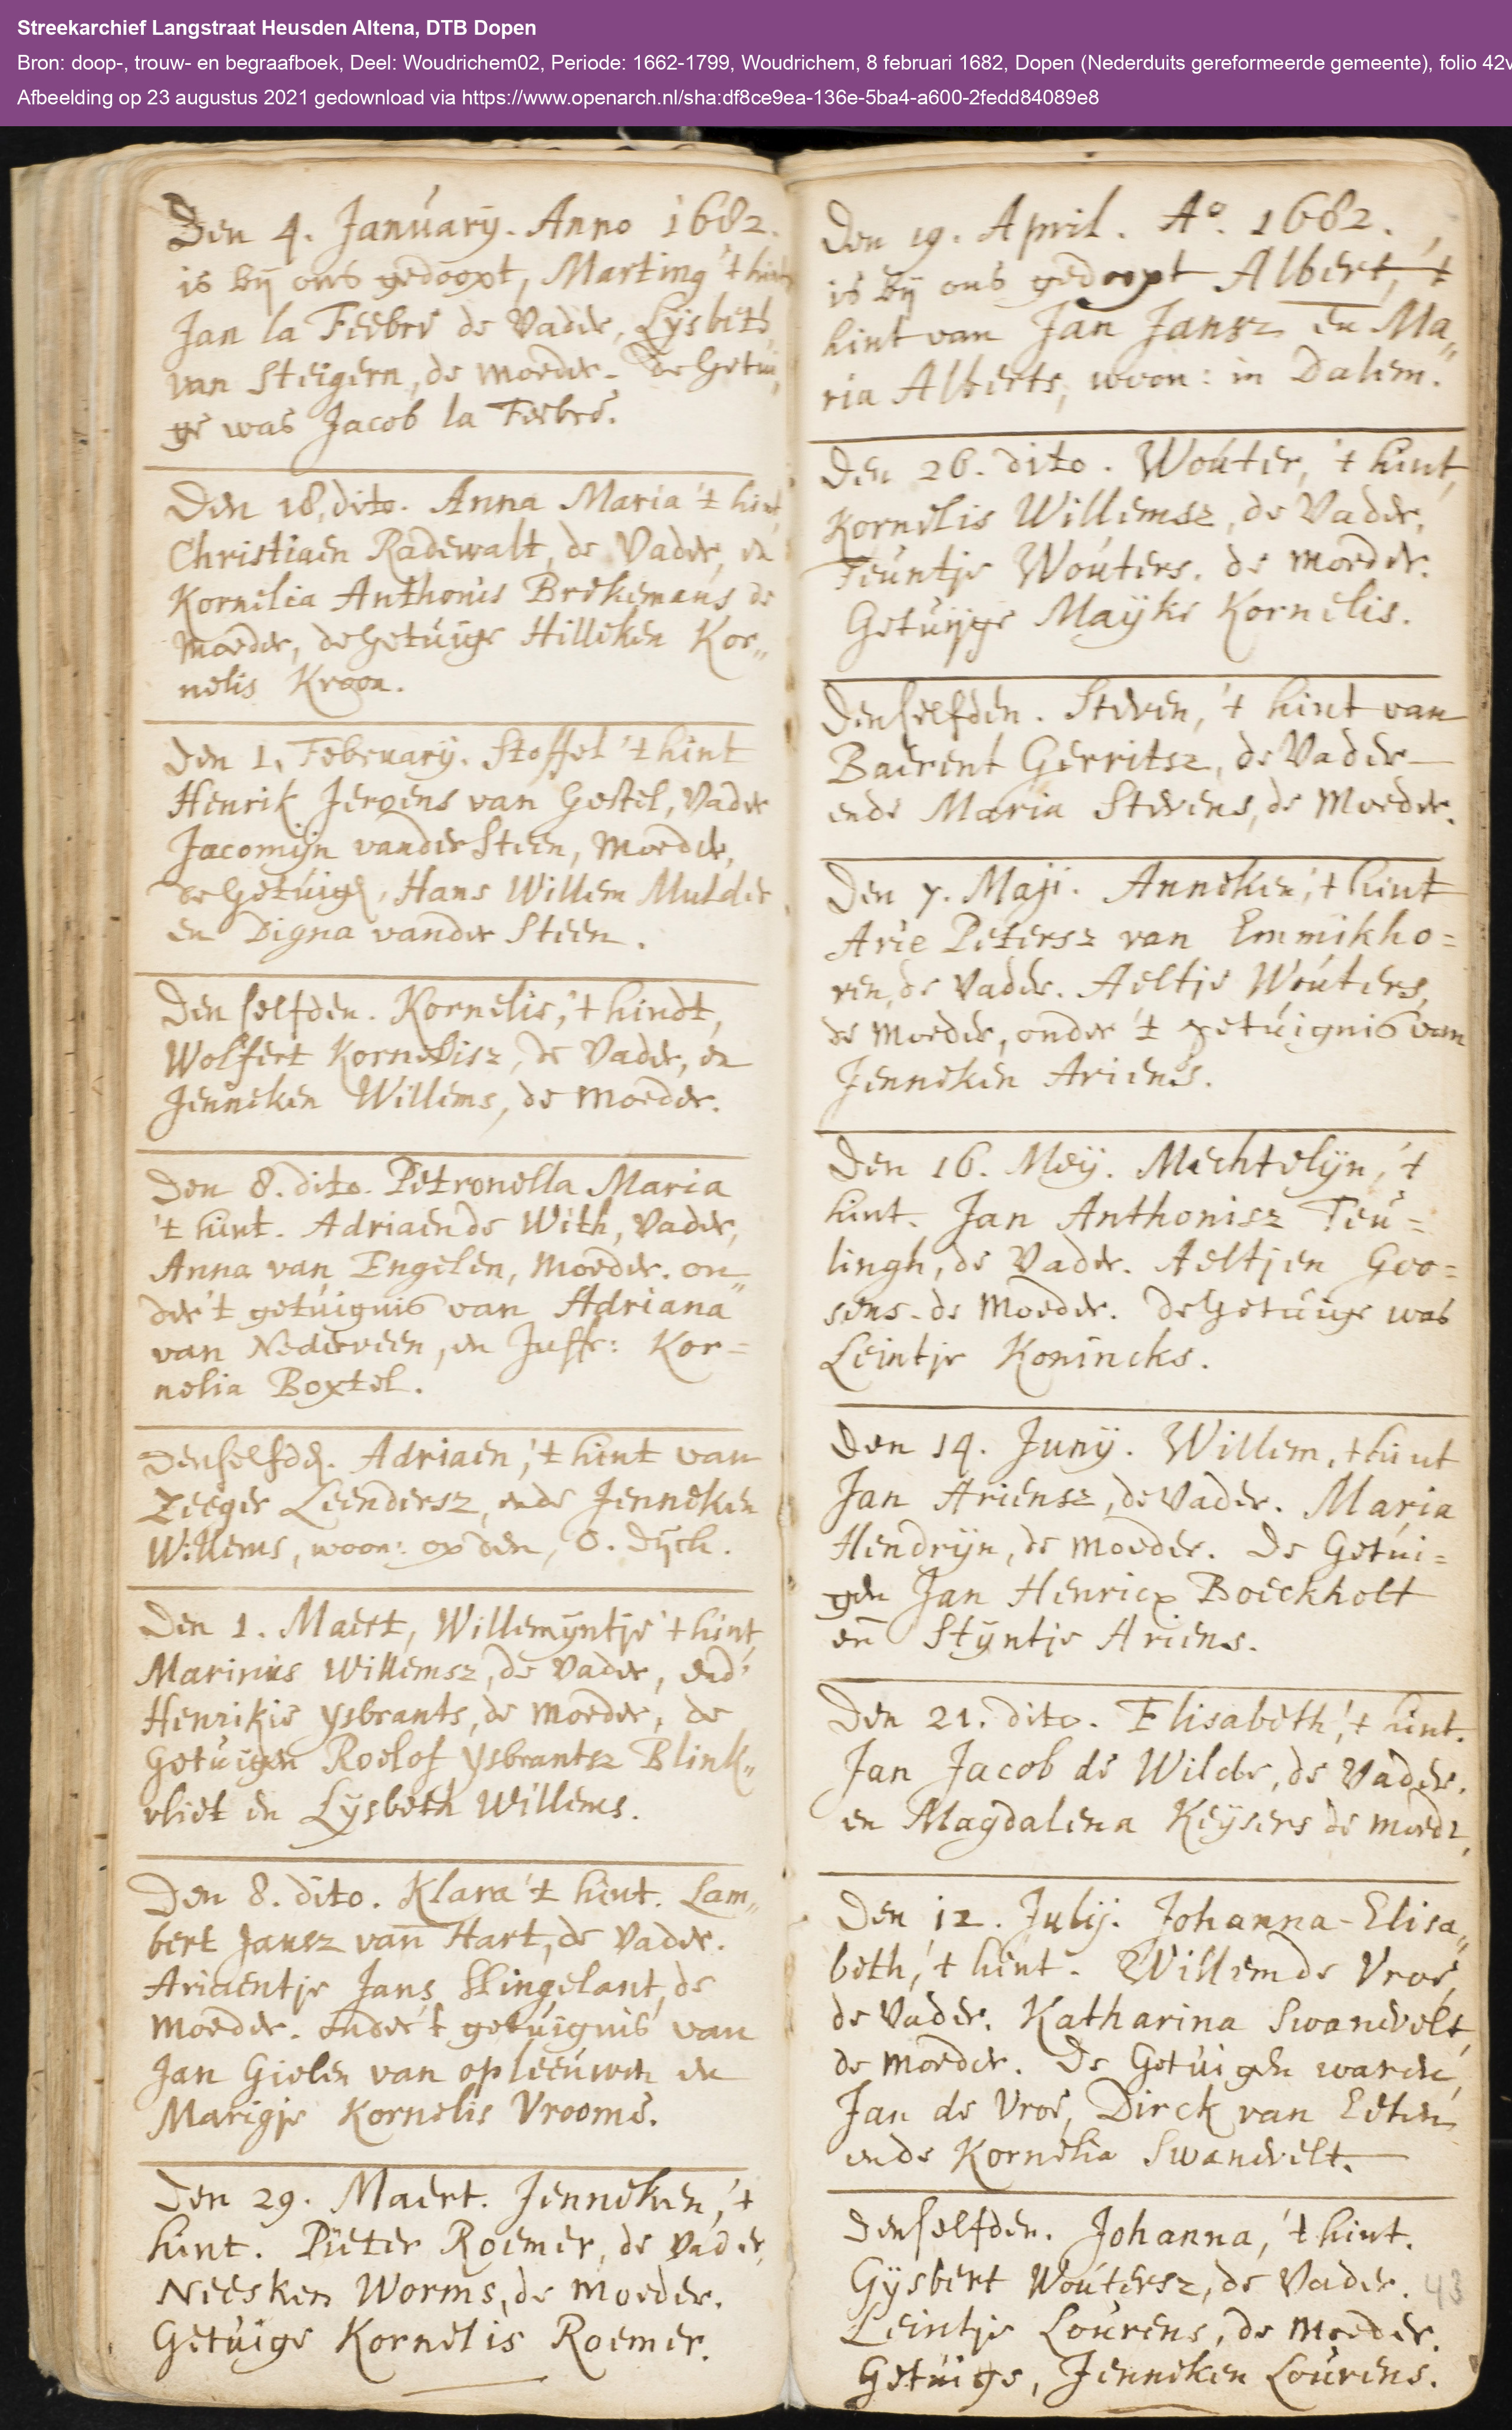 Streekarchief Langstraat Heusden Altena, DTB Dopen
Bron: doop-, trouw- en begraafboek, Deel: Woudrichem02, Periode: 1662-1799, Woudrichem, 8 februari 1682, Dopen (Nederduits gereformeerde gemeente), folio 42v
Afbeelding op 23 augustus 2021 gedownload via https://www.openarch.nl/sha:df8ce9ea-136e-5ba4-a600-2fedd84089e8
Den 4. January. Anno 1682.
is bij ons gedoopt, Marting 't kint
Jan la Feebre de Vader, Lijsbeth
van Steigern, de Moeder. De Getui„
ge was Jacob la Feebre.
Den 18. dito. Anna Maria 't kint
Christiaen Radewalt, de Vader, en
Kornelia Anthonis Brekemans de
Moeder, de Getuige Hilleken Kor„
nelis Kroon.
Den 1. February. Stoffel 't kint
Henrik Jeroens van Gestel, Vader
Jacomijn vander Steen, Moeder,
de Getuig, Hans Willem Mulder
en Digna vander Steen.
Den selfden. Kornelis, 't kindt,
Wolfert Kornelisz, de Vader, en
Jenneken Willems, de Moeder.
Den 8. dito. Petronella Maria
't kint. Adriaen de With, Vader,
Anna van Engelen, Moeder. on„
der 't getuignis van Adriana
van Nederveen, en Juffr: Kor=
nelia Boxtel.
Denselfd. Adriaen, 't kint van
Zeeger Leendersz, ende Jenneken
Willems, woon: op den, O. Dijck.
Den 1. Maert, Willemijntje 't kint
Marinus Willemsz, de Vader, end'
Henrikie ysbrants, de Moeder, de
Getuigen Roelof ysbrantsz Blink„
vliet en Lijsbeth Willems.
Den 8. dito. Klara 't kint. Lam„
bert Jansz van Hart, de Vader.
Ariaentje Jans Slingelant, de
Moeder. onder 't getuignis van
Jan Gielen van opleeuwen en
Marigje Kornelis Vroome.
Den 29. Maert. Jenneken, 't
kint. Pieter Roemer, de Vader,
Neesken Worms, de Moeder.
Getuige Kornelis Roemer.
Den 19. April. Aº. 1682.
is bij ons gedoopt Albert, 't
kint van Jan Jansz en Ma„
ria Alberts, woon: in Dalem.
Den 26. dito. Wouter, 't kint,
Kornelis Willemsz, de Vader,
Teuntje Wouters. de Moeder.
Getuijge Maijke Kornelis.
Denselfden. Steven, 't kint van
Baerent Gerritsz, de Vader
ende Maria Stevens, de Moeder.
Den 7. Maji. Anneken, 't kint
Arie Petersz van Emmikho=
ren, de Vader. Aeltje Wouters,
de Moeder, onder 't getuignis van
Jenneken Ariens.
Den 16. Meij. Mechtelijn, 't
kint. Jan Anthonisz Teu=
lingh, de Vader. Aeltjen Goo=
sens. de Moeder. De Getuige was
Leintje Konincks.
Den 14. Junij. Willem, t kint
Jan Ariensz, de Vader. Maria
Hendrijn, de Moeder. De Getui=
gen Jan Henricx Boeckholt
en Stijntje Ariens.
Den 21. dito. Elisabeth, 't kint.
Jan Jacob de Wilde, de Vader.
en Magdalena Keijsers de Moedr,
Den 12. Julij. Johanna-Elisa„
beth, 't kint. Willem de Vroe,
de Vader. Katharina Swanevelt,
de Moeder. De Getuigen waren,
Jan de Vroe, Dirck van Eeten
ende Kornelia Swanevelt.
Denselfden. Johanna, 't kint.
Gijsbert Woutersz, de Vader.
43
Leintje Lourens, de Moeder.
Getuige, Jenneken Lourens.